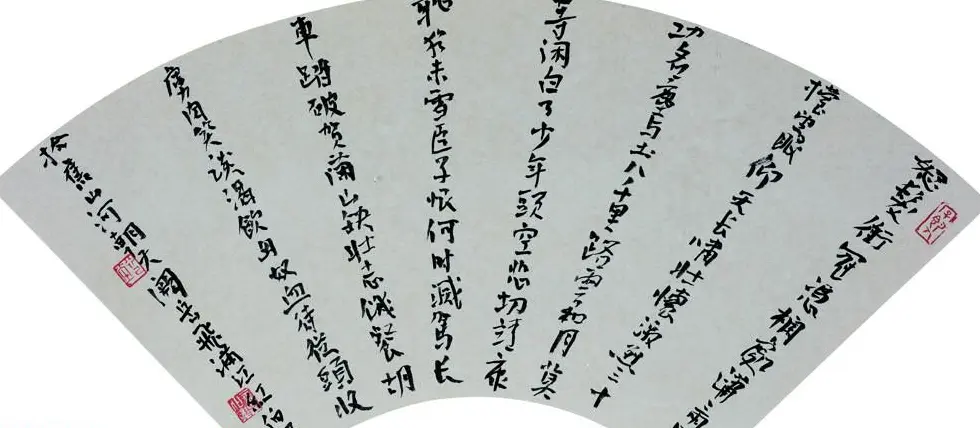 怒髮衝冠憑欄處瀟雨
擡望眼仰天長嘯壯懷激烈三十
功名塵與土八千里路雲和月莫
等闲白了少年頭空悲切靖康
恥猶未雪臣子恨何时滅駕长
車踏破贺蘭山缺壮志饑餐胡
虜肉笑谈渴飲匈奴血待從頭收
拾舊山河朝天闕岳飛滿江红